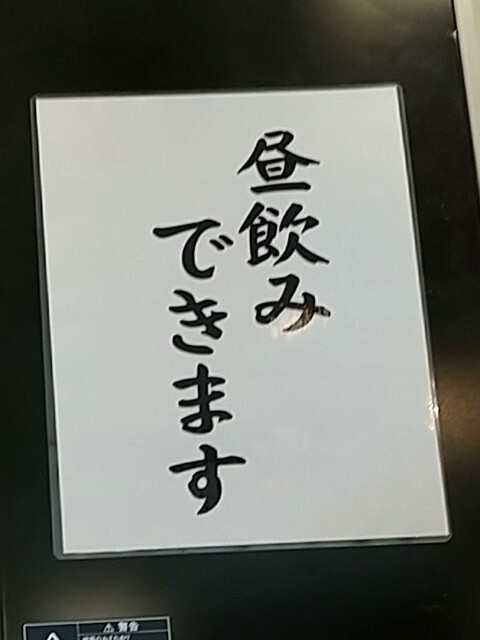 昼飲み
できます
⚠警告